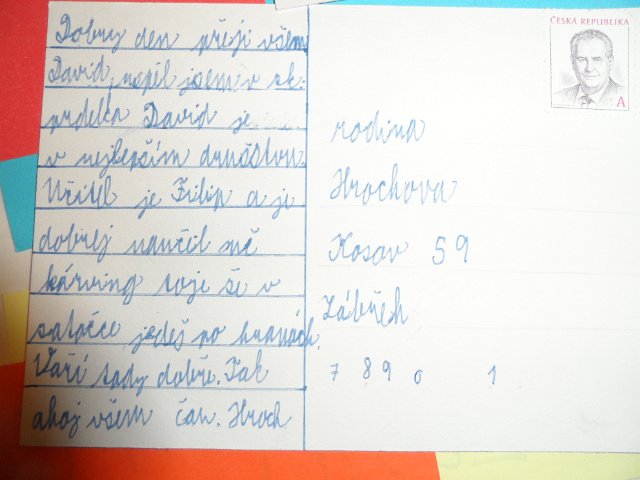 Dobrý den přeji všem
David, nspěl jsem v sk.
prdelka David je
v nejlepším družstvu
Učitel je Filip a je
dobrej naučil mě
kárving toje še v
zatačce jedeš po hranách.
Vaří tady dobře. Tak
ahoj všem čau. Hroch
ČESKÁ REPUBLIKA
A
rodina
Hrochova
Kosov 59
Zábřeh
789 0 1